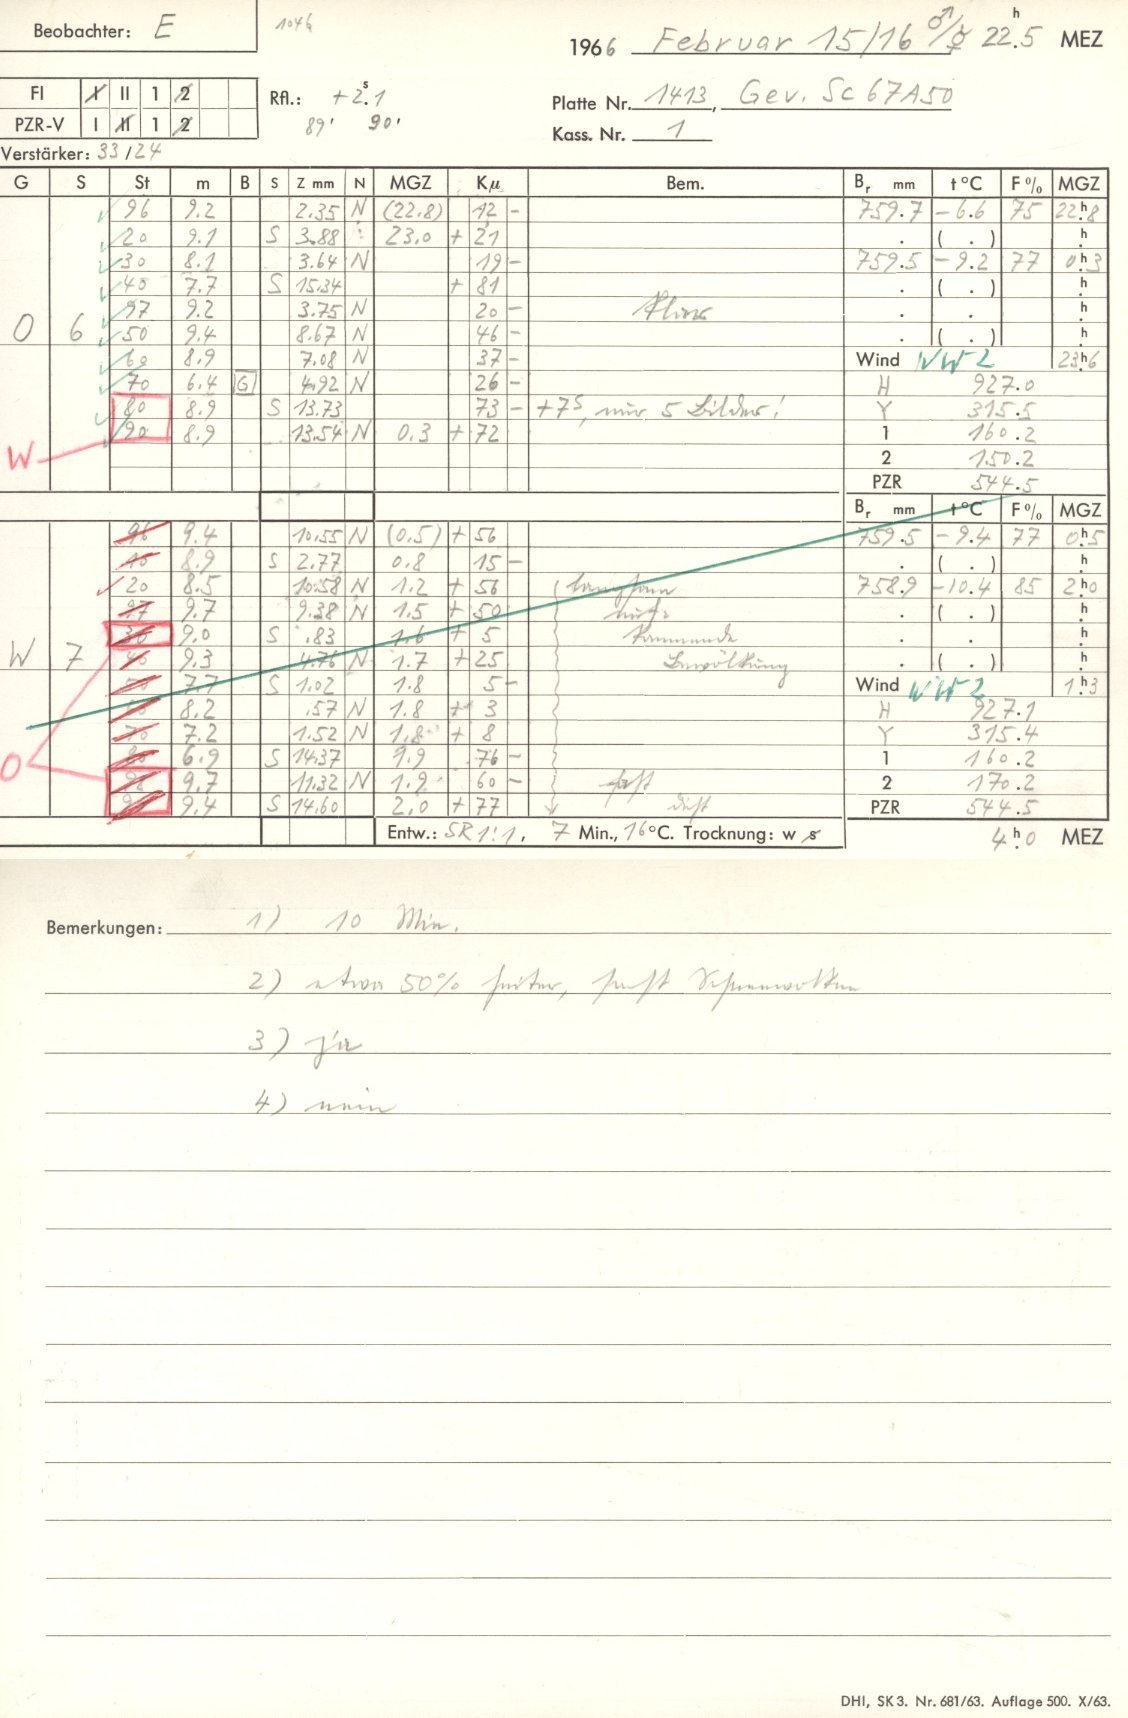 Beobachter: E
1046
1966 Februar 15/16 ♂/♀ 22h.5 MEZ
FI I II 1 2
PZR-V I II 1 2
Rfl.: +2s.1
89' 90'
Platte Nr. 1413, Gev. Sc 67A50
Kass. Nr. 1
Verstärker: 33/24
G S St m B S Z mm N MGZ Kμ Bem. Br mm t °C F % MGZ
96 9.2 2.35 N (22.8) 12 - 759.7 -6.6 75 22h.8
20 9.1 S 3.88 23.0 + 21 . ( . ) h.
30 8.1 3.64 N 19 - 759.5 -9.2 77 0h.3
40 7.7 S 15.34 + 81 . ( . ) h.
97 9.2 3.75 N 20 - . . h.
O 6 50 9.4 8.67 N 46 - . ( . ) h.
60 8.9 7.08 N 37 - Wind NW 2 23h.6
70 6.4 G 4.92 N 26 - H 927.0
80 8.9 S 13.73 73 - +7s, nur 5 Bilder! Y 315.5
90 8.9 13.54 N 0.3 + 72 1 160.2
W 2 150.2
PZR 544.5
Br mm t °C F % MGZ
96 9.4 10.55 N (0.5) + 56 759.5 -9.4 77 0h.5
10 8.9 S 2.77 0.8 15 - . ( . ) h.
20 8.5 10.58 N 1.2 + 56 langsam 758.9 -10.4 85 2h.0
97 9.7 9.38 N 1.5 + 50 . ( . ) h.
30 9.0 S .83 1.6 + 5 kommende . . h.
W 7 40 9.3 4.76 N 1.7 + 25 Bewölkung . ( . ) h.
50 7.7 S 1.02 1.8 5 - Wind NW 2 1h.3
60 8.2 .57 N 1.8 + 3 H 927.1
70 7.2 1.52 N 1.8 + 8 Y 315.4
O 80 6.9 S 14.37 1.9 76 - 1 160.2
98 9.7 11.32 N 1.9 60 - fast 2 170.2
9.4 S 14.60 2.0 + 77 dicht PZR 544.5
Entw.: SR 1:1, 7 Min., 16 °C. Trocknung: w s 4h.0 MEZ
Bemerkungen: 1) 10 Min.
2) etwa 50% heiter, sonst Schneewolken
3) ja
4) nein
DHI, SK 3. Nr. 681/63. Auflage 500. X/63.